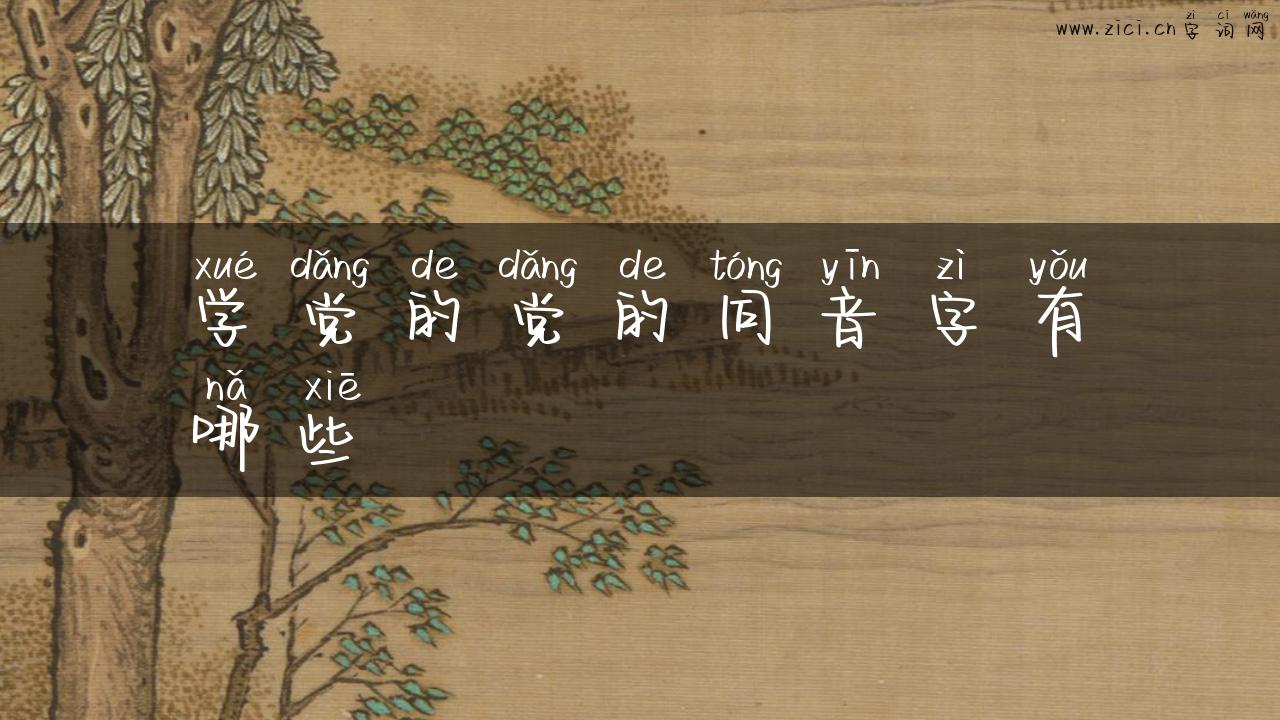 zì cí wǎng
www.zici.cn 字词网
xué dǎng de dǎng de tóng yīn zì yǒu
学党的党的同音字有
nǎ xiē
哪些